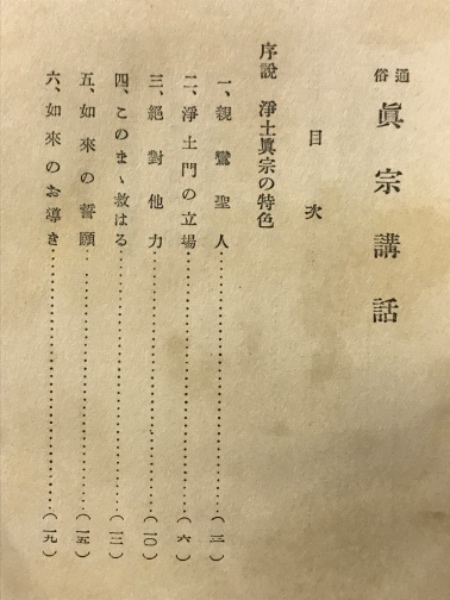 通俗 眞宗講話
目次
序說 淨土眞宗の特色
一、親鸞聖人……………………(三)
二、淨土門の立場……………………(六)
三、絕對他力……………………(一〇)
四、このまゝ救はる……………………(一二)
五、如來の誓願……………………(一五)
六、如來のお導き……………………(一九)